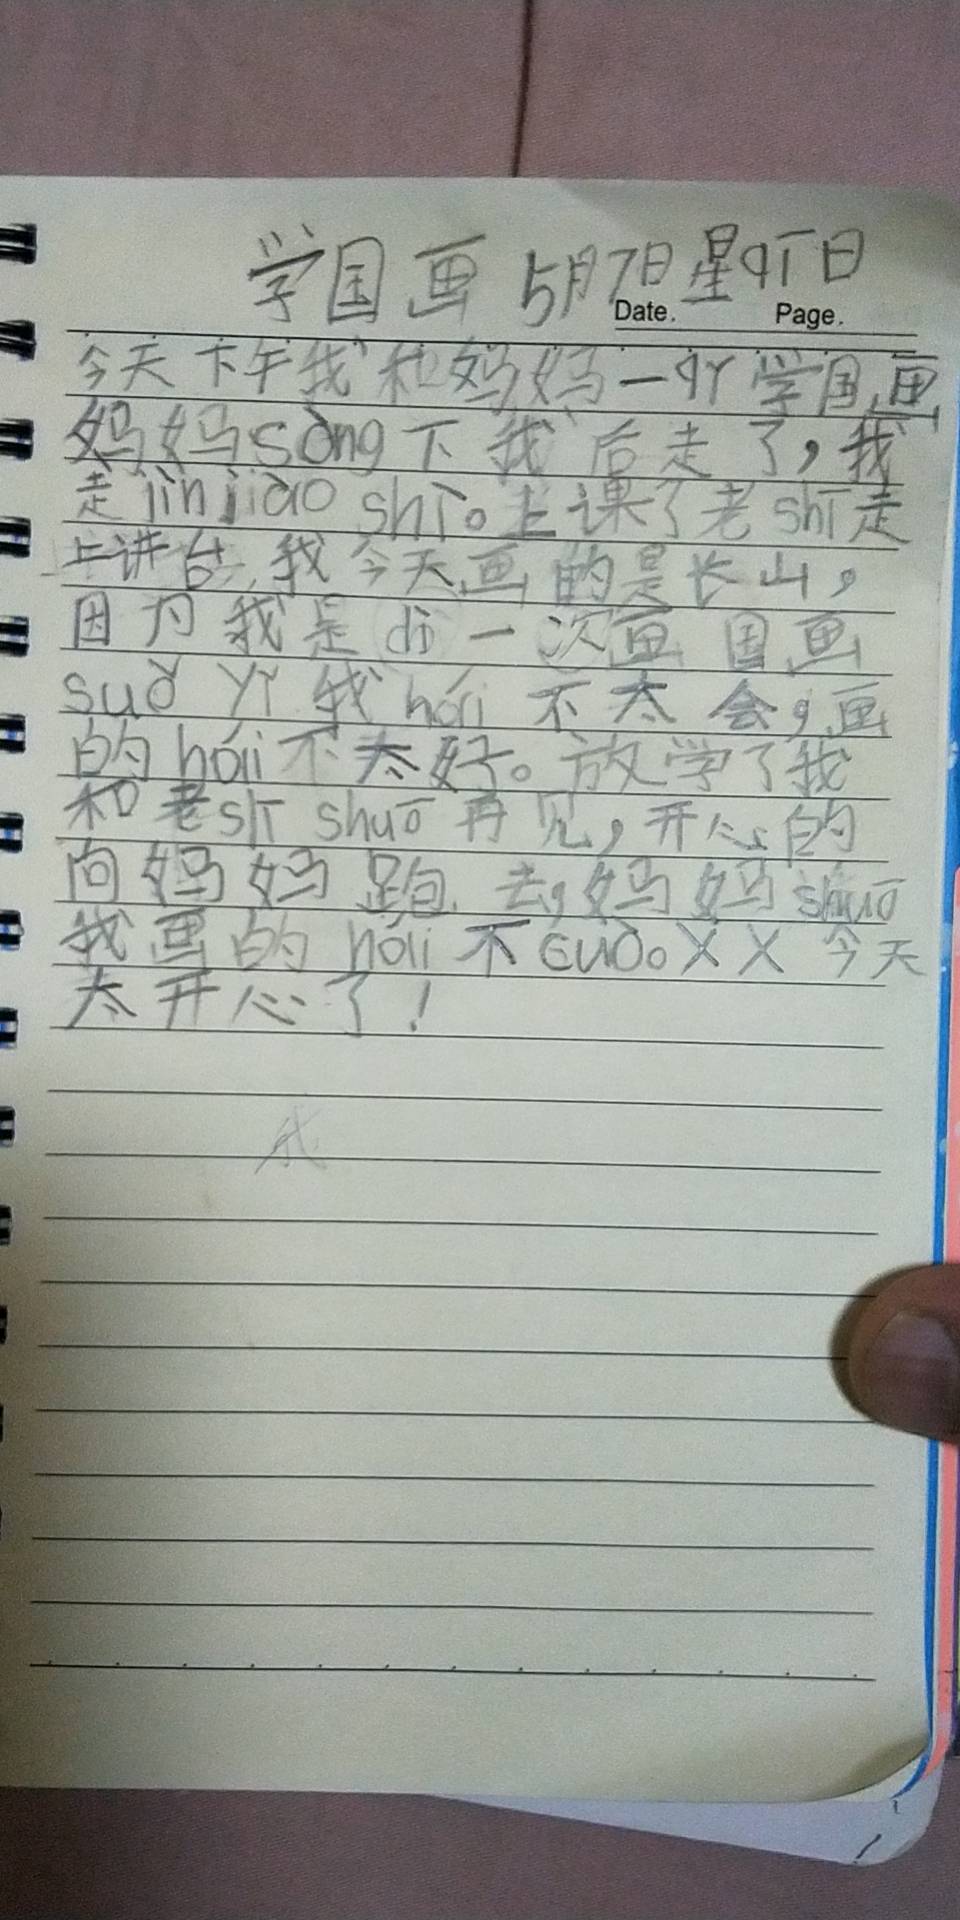 学国画 5月7日星qī日
Date. Page.
今天下午我和妈妈一qǐ学国画
妈妈sòng下我后走了,我
走jìnjiào shì。上课了老shī走
上讲台,我今天画的是长山,
因为我是dì一次画国画
suǒ yǐ我hái不太会,画
的hái不太好。放学了我
和老shī shuō再见,开心的
向妈妈跑去,妈妈shuō
我画的hái不cuò。XX今天
太开心了!
我